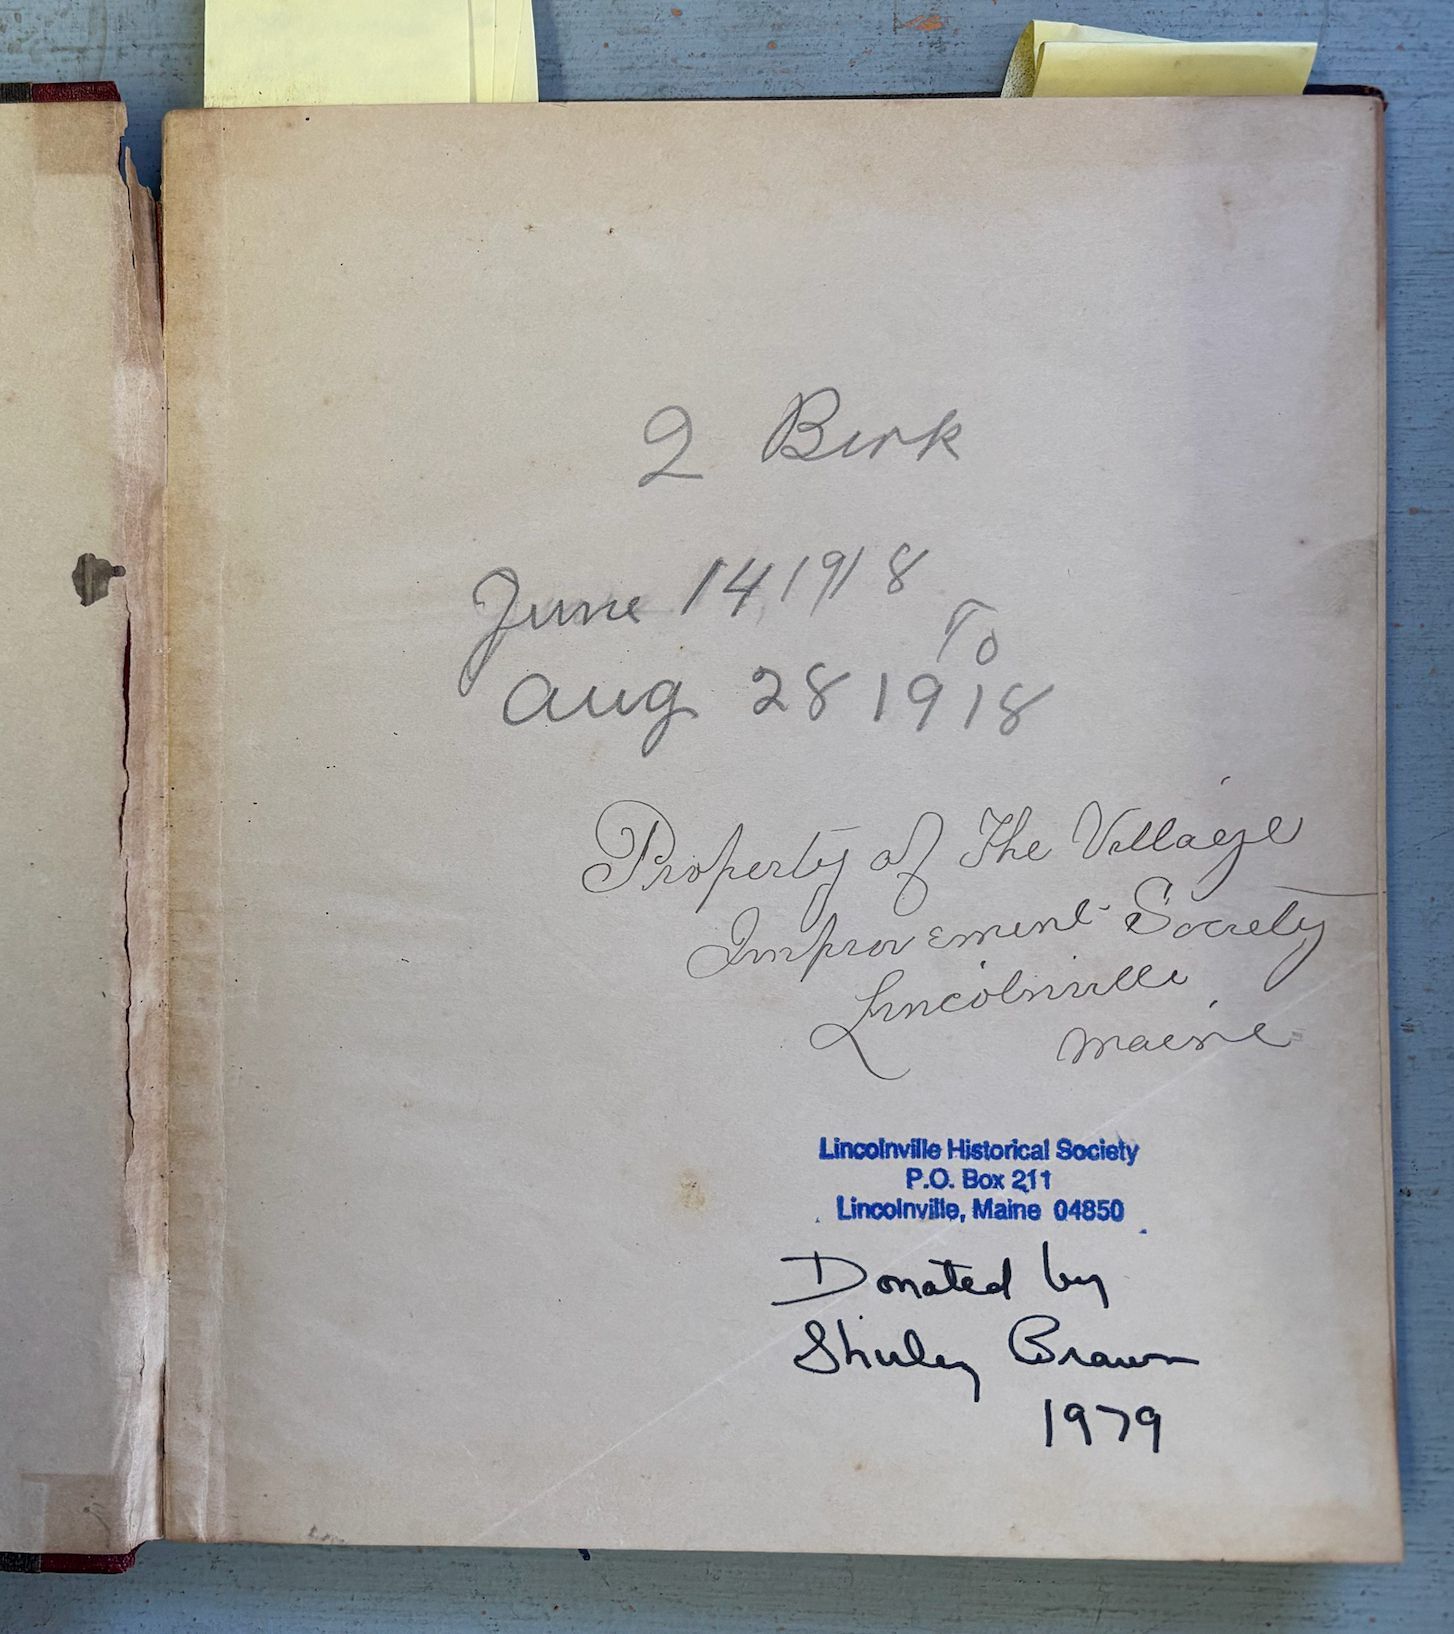 2 Birk
June 14 1918
To
Aug 28 1918
Property of The Village
Improvement Society
Lincolnville
Maine
Lincolnville Historical Society
P.O. Box 211
Lincolnville, Maine 04850
Donated by
Shirley Brawn
1979